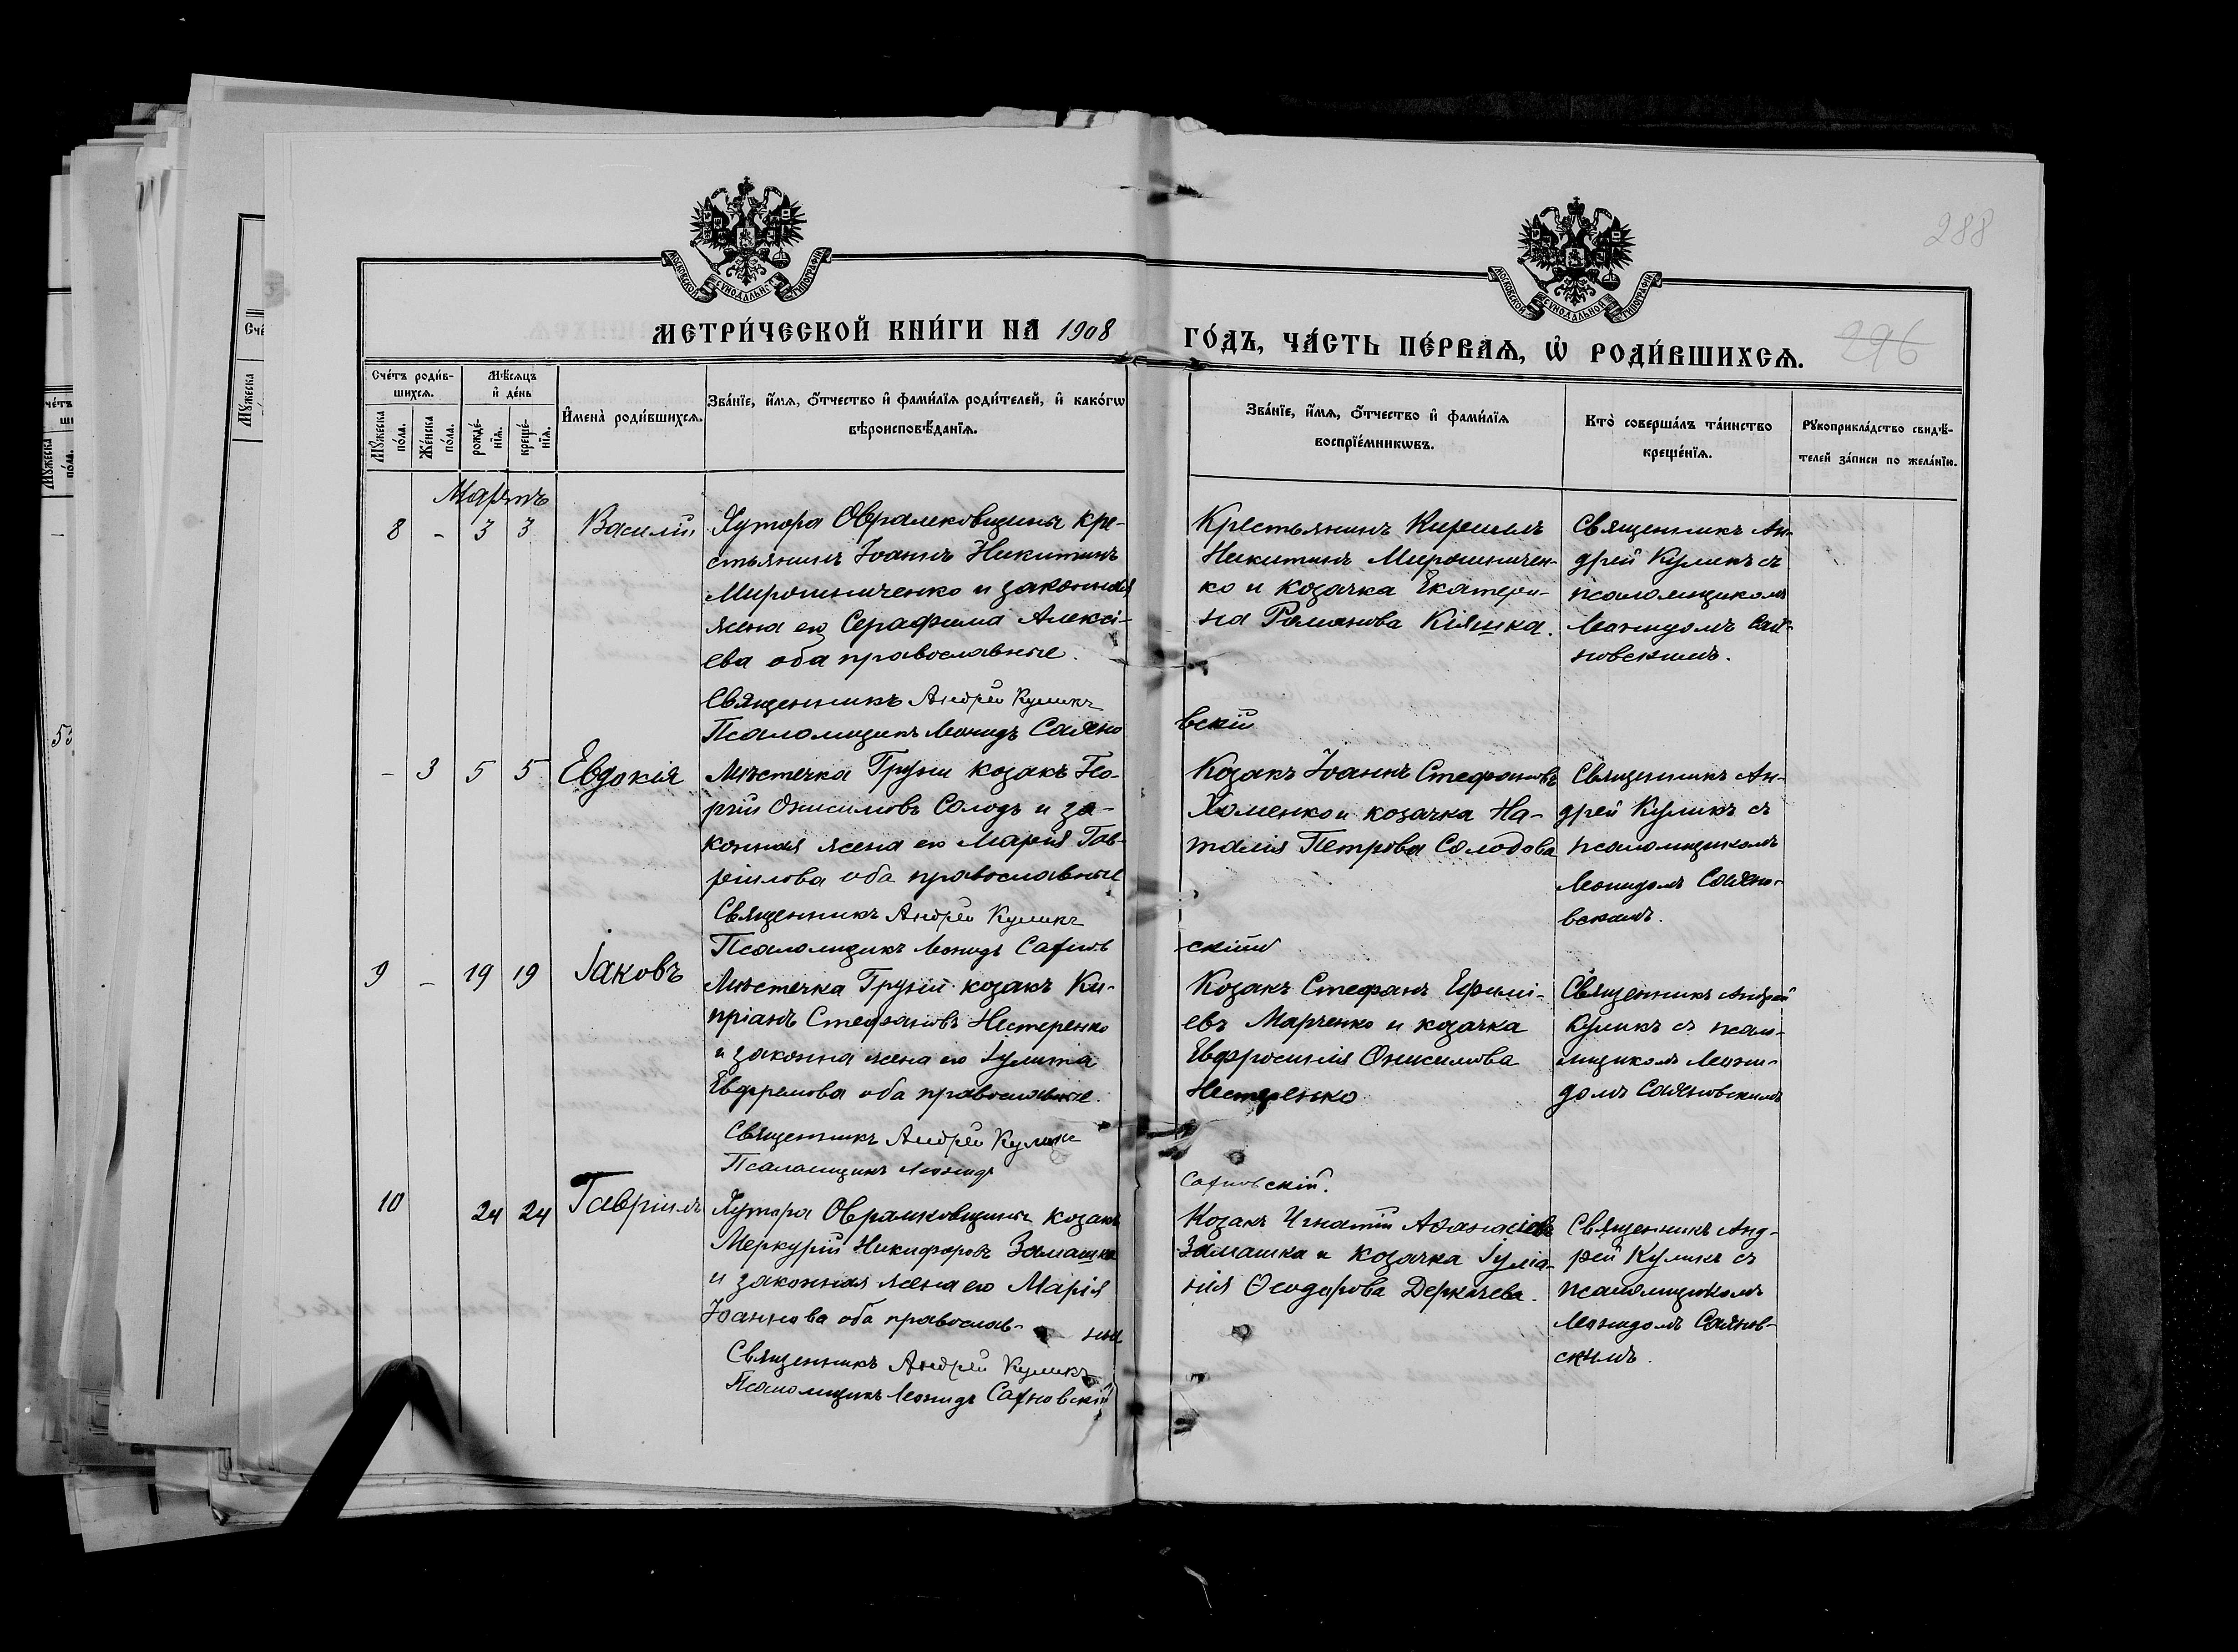 288
296
МОСКОВСКОЙ СѴНОДАЛЬНОЙ ТИПОГРАФІИ
МОСКОВСКОЙ СѴНОДАЛЬНОЙ ТИПОГРАФІИ
МЕТРИ́ЧЕСКОЙ КНИ́ГИ НА 1908 ГО́ДЪ, ЧА́СТЬ ПЕ́РВАѦ, Ѡ҆ РОДИ́ВШИХСѦ.
Сче́тъ роди́в-
шихсѧ.
Мѣ́сѧцъ
и҆ де́нь
Мꙋ́жеска
по́ла.
Же́нска
по́ла.
рожде́-
нїѧ.
креще́-
нїѧ.
И҆мена̀ роди́вшихсѧ.
Зва́нїе, и҆́мѧ, ѻ҆́тчество и҆ фами́лїѧ роди́телей, и҆ како́гѡ
вѣроисповѣ́данїѧ.
Зва́нїе, и҆́мѧ, ѻ҆́тчество и҆ фами́лїѧ
воспрїе́мникѡвъ.
Кто̀ соверша́лъ та́инство
креще́нїѧ.
Рꙋкоприкла́дство свидѣ́-
телей за́писи по жела́нїю.
Мартъ
8 - 3 3 Василій
Хутора Оврамковщины кре-
стьянинъ Іоаннъ Никитинъ
Мирошниченко и законная
жена его Серафима Алексі-
ева оба православные.
Священникъ Андрей Куликъ
Псаломщикъ Леонидъ Саѳно
вскій
Крестьянинъ Кириллъ
Никитинъ Мирошничен-
ко и козачка Екатери-
на Романова Кіяшка.
Священникъ Ан-
дрей Куликъ съ
псаломщикомъ
Леонидомъ Саѳ-
новскимъ.
- 3 5 5 Евдокія
Мѣстечка Груни козакъ Гео-
ргій Онисимовъ Солодъ и за-
конная жена его Марія Гав-
ріилова оба православные
Священникъ Андрей Куликъ
Псаломщикъ Леонидъ Сафнов
скій
Козакъ Іоаннъ Стефановъ
Хоменко и козачка На-
талія Петрова Солодова
Священникъ Ан-
дрей Куликъ съ
псаломщикомъ
Леонидомъ Саѳно-
вскимъ.
9 - 19 19 Іаковъ
Мѣстечка Груни козакъ Ки-
пріанъ Стефановъ Нестеренко
и законна жена его Іулита
Евфремова оба православные.
Священникъ Андрей Куликъ
Псаломщикъ Леонидъ
Сафновскій.
Козакъ Стефанъ Ефимі-
евъ Марченко и козачка
Евфросинія Онисимова
Нестеренко
Священникъ Андрей
Куликъ съ псало-
мщикомъ Леони-
домъ Саѳновскимъ
10 24 24 Гавріилъ
Хутора Оврамковщины козакъ
Меркурій Никифоровъ Замашка
и законная жена его Марія
Іоаннова оба православ- ные
Священникъ Андрей Куликъ
Псаломщикъ Леонидъ Сафновскій
Козакъ Игнатій Аѳанасіевъ
Замашка и козачка Іуліа-
нія Ѳеодорова Деркачева.
Священникъ Анд-
рей Куликъ съ
псаломщикомъ
Леонидомъ Саѳнов-
скимъ.